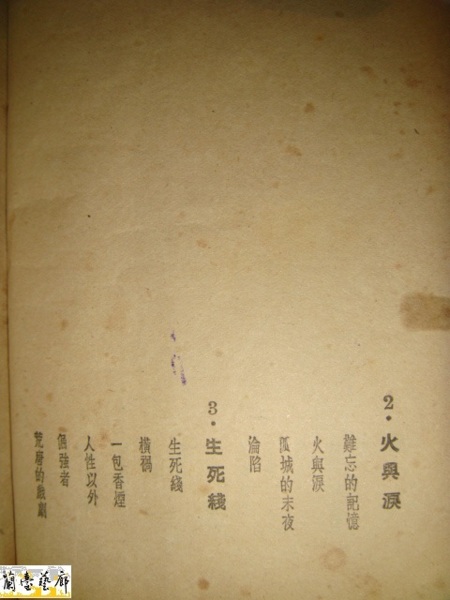 2·火與淚
難忘的記憶
火與淚
孤城的末夜
淪陷
3·生死綫
生死綫
橫禍
一包香煙
人性以外
倔強者
荒唐的戲劇
蘭臺藝廊